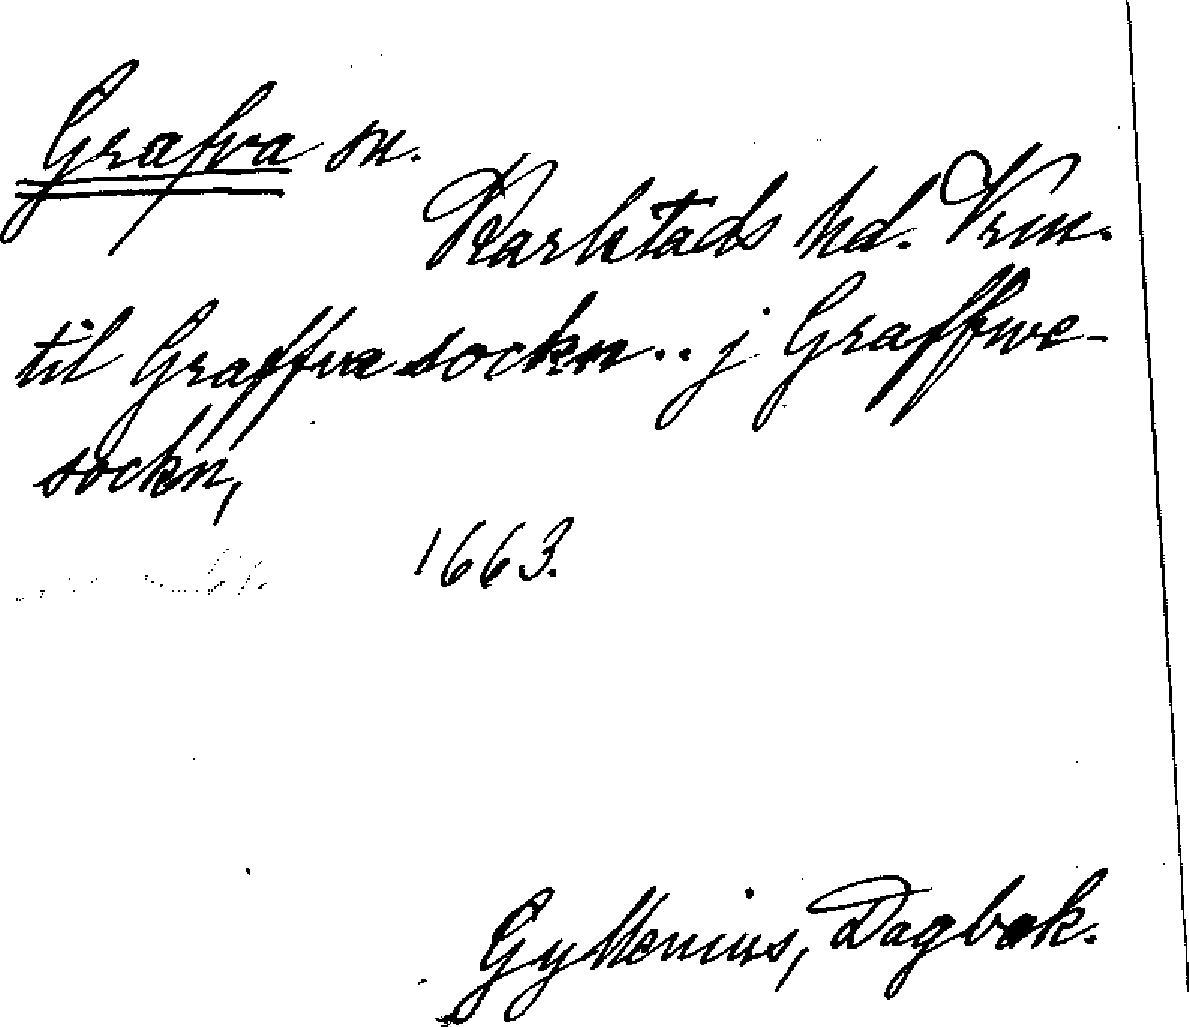 Grafva sn.
Karlstads hd. Vrm.
til Graffwa sockn .. j Graffwe-
sockn,
1663.
Gyllenius, Dagbok.